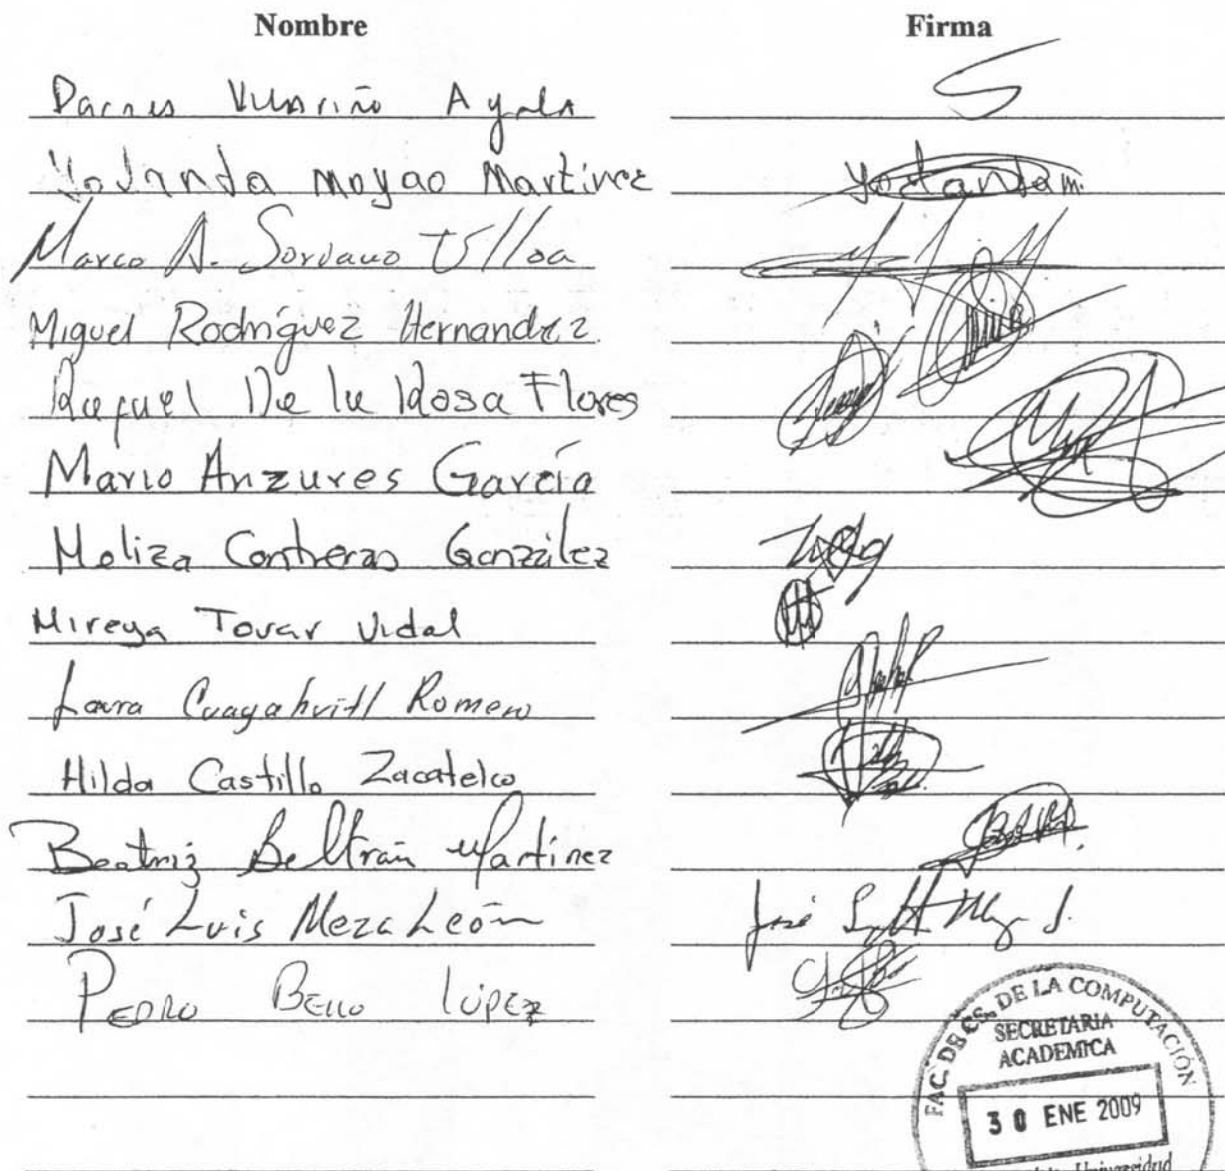 Nombre Firma
Darnes Vilariño Ayala
Yolanda Moyao Martínez Yolanda m.
Marco A. Soriano Ulloa
Miguel Rodríguez Hernandez
Rafael De la Rosa Flores
Mario Anzures García
Meliza Contreras González
Mireya Tovar Vidal
Laura Cuayahuitl Romero
Hilda Castillo Zacatelco
Beatriz Beltrán Martínez
José Luis Meza León José
PEDRO BELLO LÓPEZ
FAC. DE CS. DE LA COMPUTACIÓN
SECRETARIA
ACADEMICA
30 ENE 2009
Universidad